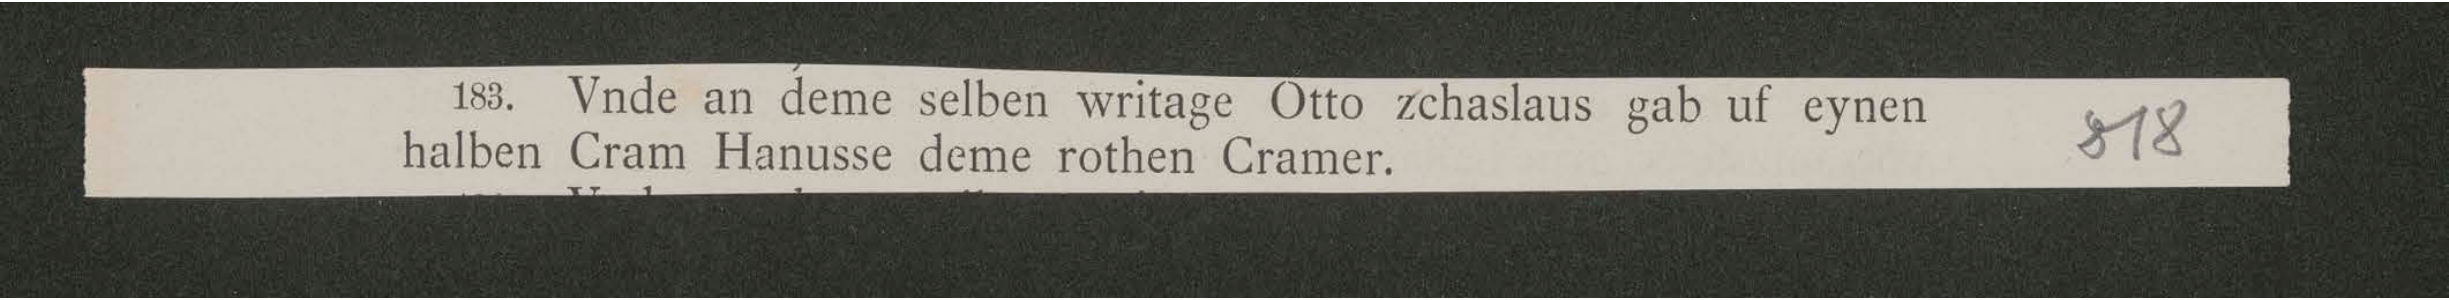 183. Vnde an deme selben writage Otto zchaslaus gab uf eynen
halben Cram Hanusse deme rothen Cramer.
818